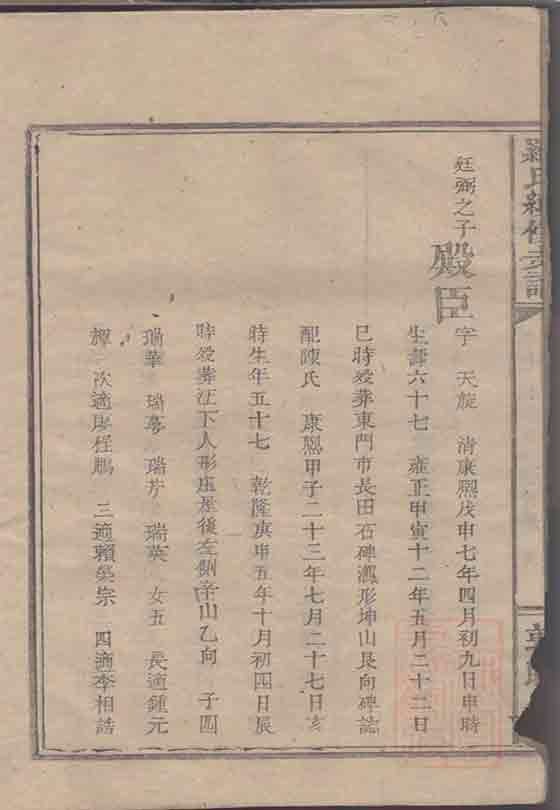 羅氏續修支譜
廷弼之子
殿臣
字 天旋 清康熙戊申七年四月初九日申時
生壽六十七 雍正甲寅十二年五月二十二日
巳時歿葬東門市長田石碑瀝形坤山艮向碑誌
配陳氏 康熙甲子二十三年七月二十七日亥
時生年五十七 乾隆庚申五年十月初四日辰
時歿葬汪下人形座屋後左側辛山乙向 子四
瑞華 瑞蕚 瑞芹 瑞英 女五 長適鍾元
輝 次適廖程鵬 三適賴榮宗 四適李相誥